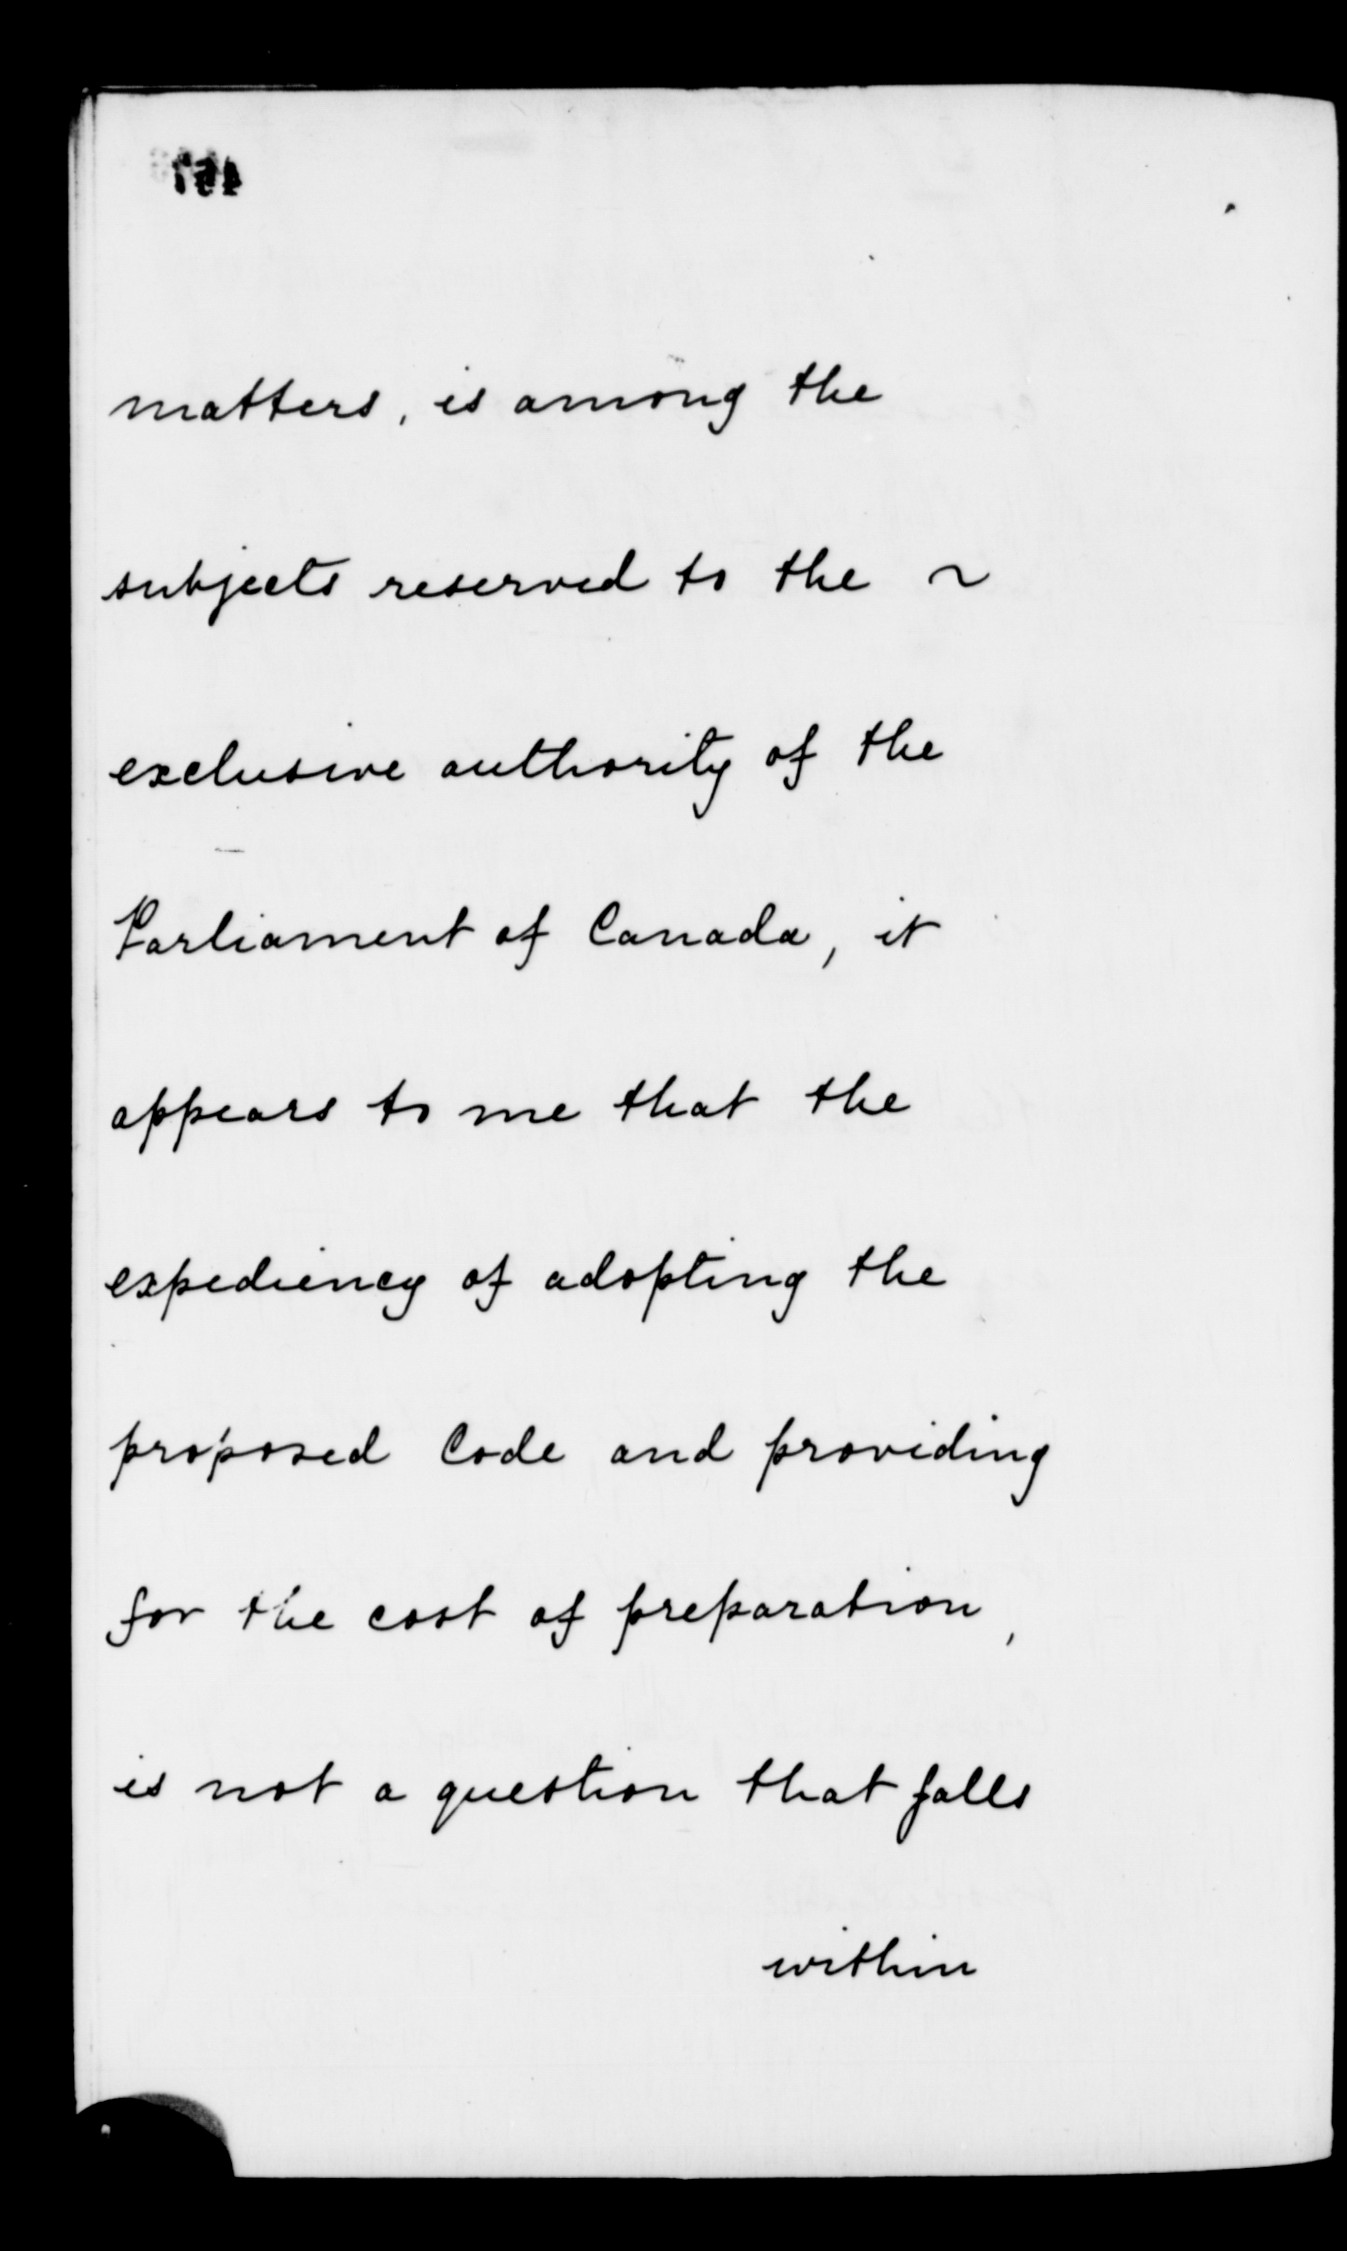 matters, is among the
subjects reserved to the ~
exclusive authority of the
Parliament of Canada, it
appears to me that the
expediency of adopting the
proposed Code and providing
for the cost of preparation,
is not a question that falls
within